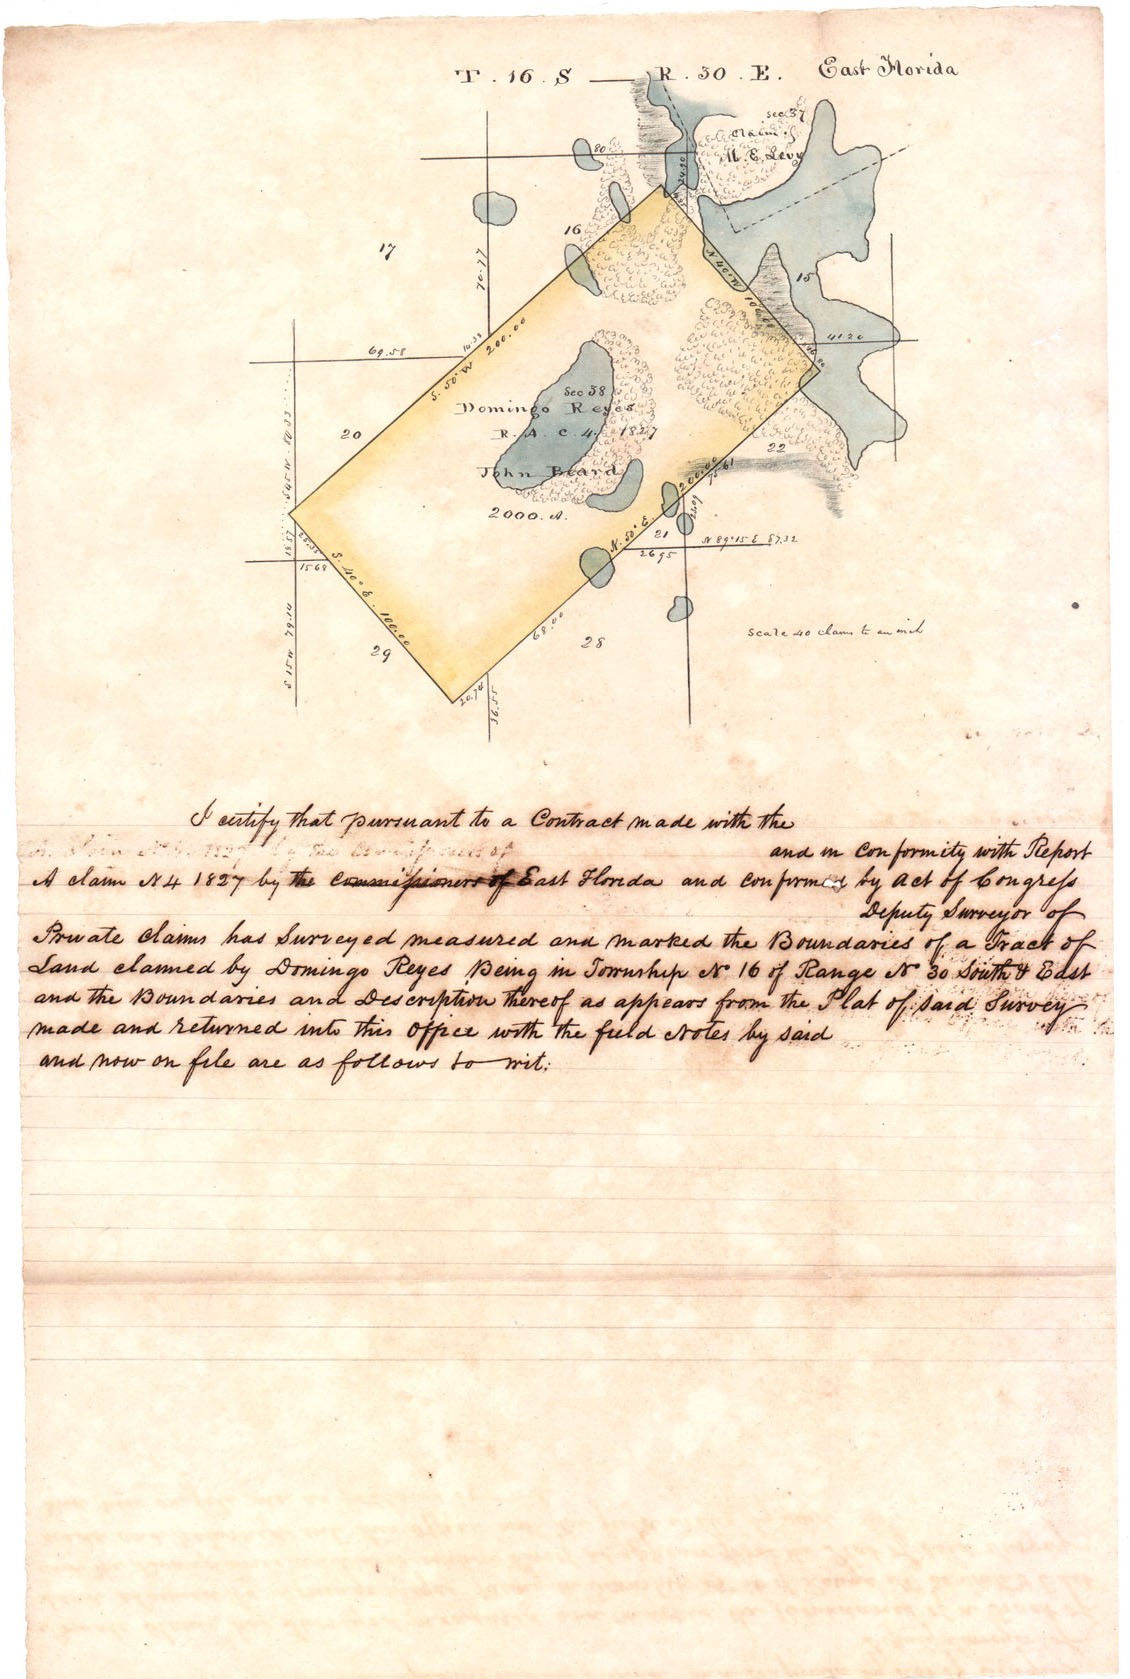 T. 16. S — R. 30. E. East Florida
sec 37
Claim of
M. E. Levy
80
24.20
17
16
70.77
N 40° W
15
14.53
200.00
41 20
69.58
S. 50° W
Sec 38
Domingo Reyes
R. A. C. 4. 1827
20
22
John Beard
200.00
2000. A.
N. 50° E.
21
N 89° 15 E 87.32
26 95
18 57
15 68
S. 40° E. 100.00
68.00
28
Scale 40 chains to an inch
29
S 15 W 79.14
20.74
56.55
I certify that pursuant to a Contract made with the
and in conformity with Report
A claim N 4 1827 by the commissioners of East Florida and confirmed by act of Congress
Deputy Surveyor of
Private claims has Surveyed measured and marked the Boundaries of a Tract of
Land claimed by Domingo Reyes Being in Township No 16 of Range No 30 South & East
and the Boundaries and Description thereof as appears from the Plat of said Survey
made and returned into this office with the field Notes by said
and now on file are as follows to wit: